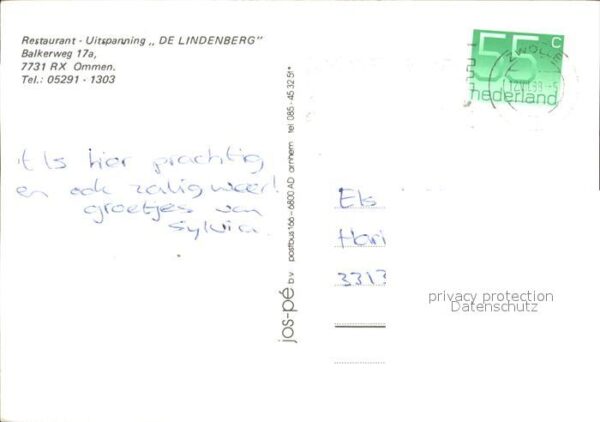 Restaurant - Uitspanning „ DE LINDENBERG"
Balkerweg 17a,
7731 RX Ommen.
Tel.: 05291 - 1303
't Is hier prachtig
en ook zalig weer!
groetjes van
Sylvia.
jos-pé b.v. postbus 166 – 6800 AD arnhem tel 085 - 45 32 51*
55 c
nederland
ZWOLLE
Els
Hari
3313
privacy protection
Datenschutz